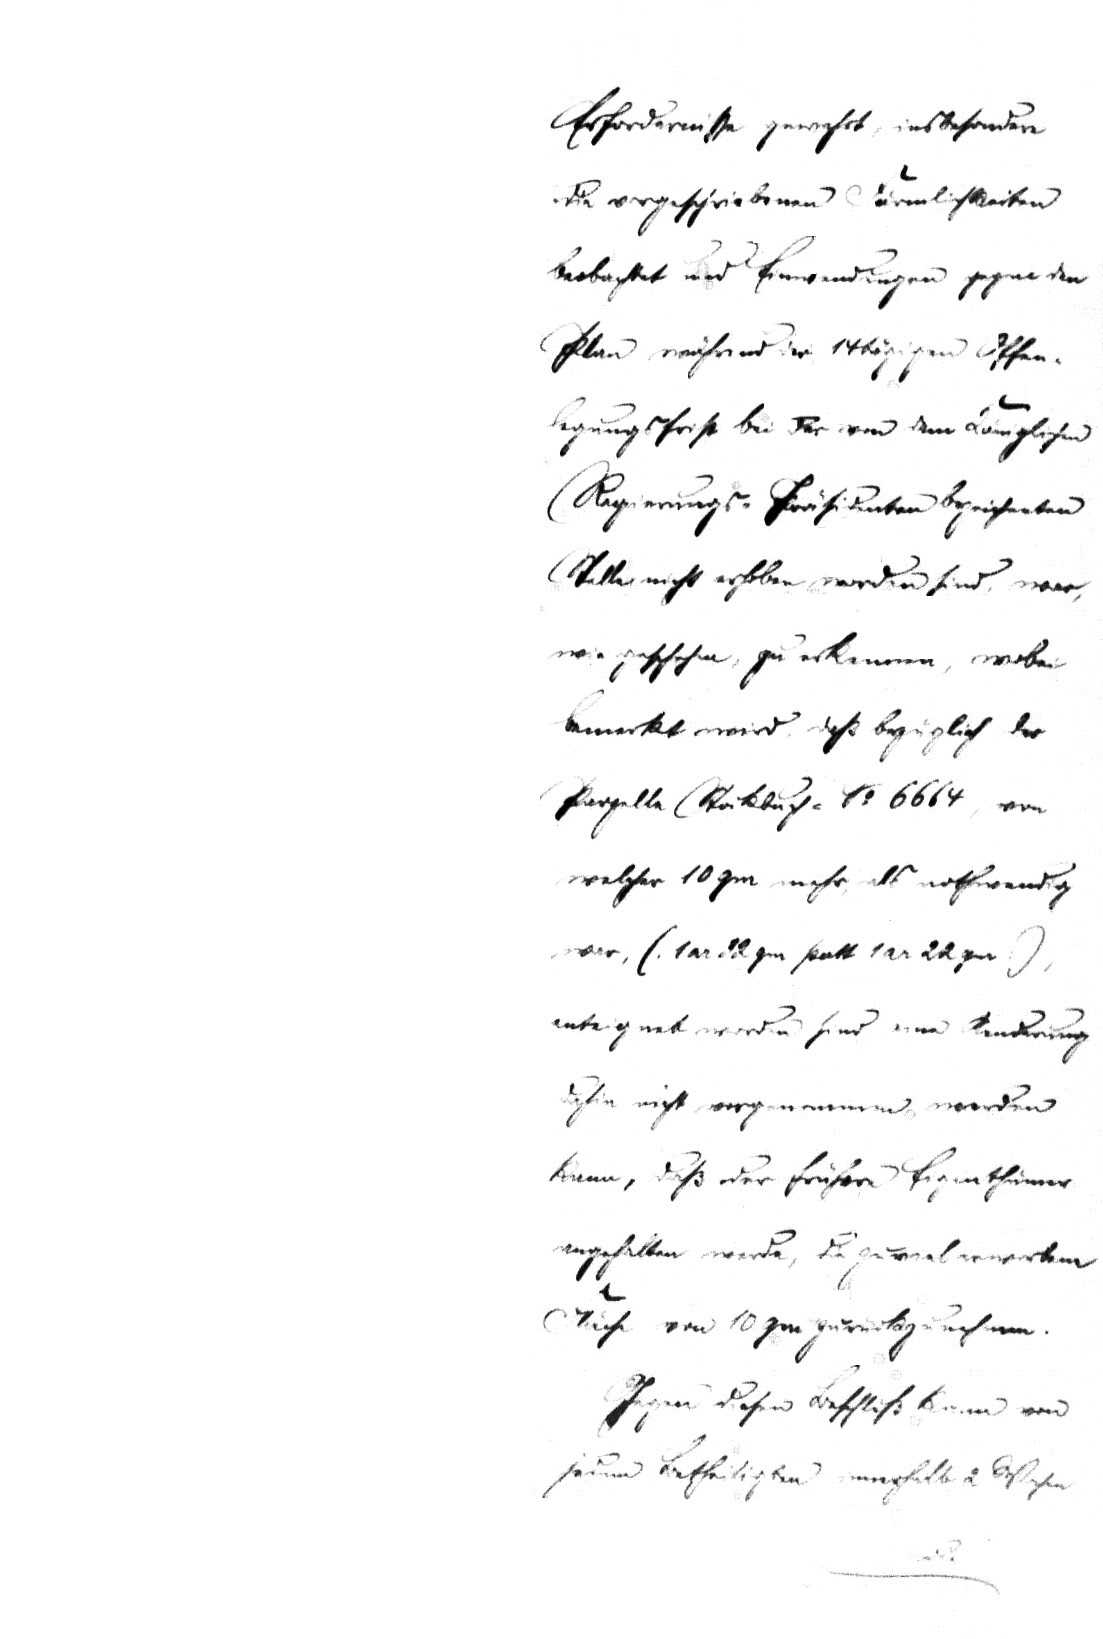 Erfordernisse gewahrt, insbesondere
die vorgeschriebenen Förmlichkeiten
beobachtet und Einwendungen gegen den
Plan während der 14tägigen Offen-
legungsfrist bei der von dem Königlichen
Regierungs-Präsidenten bezeichneten
Stelle nicht erhoben worden sind, war,
wie geschehen, zu erkennen, wobei
bemerkt wird, daß bezüglich der
Parzelle Stockbuch-No 6664, von
welcher 10 qm mehr, als nothwendig
war, (: 1 ar 32 qm statt 1 ar 22 qm :),
enteignet worden sind eine Aenderung
dahin nicht vorgenommen werden
kann, daß der frühere Eigenthümer
angehalten werde, die zuviel erworbene
Fläche von 10 qm zurückzunehmen.
Gegen diesen Beschluß kann von
jedem Betheiligten innerhalb 2 Wochen